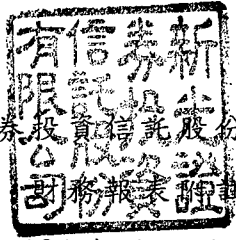 新光證
券投資
信託股份
有限公司
券投資信託股份
財務報表附註